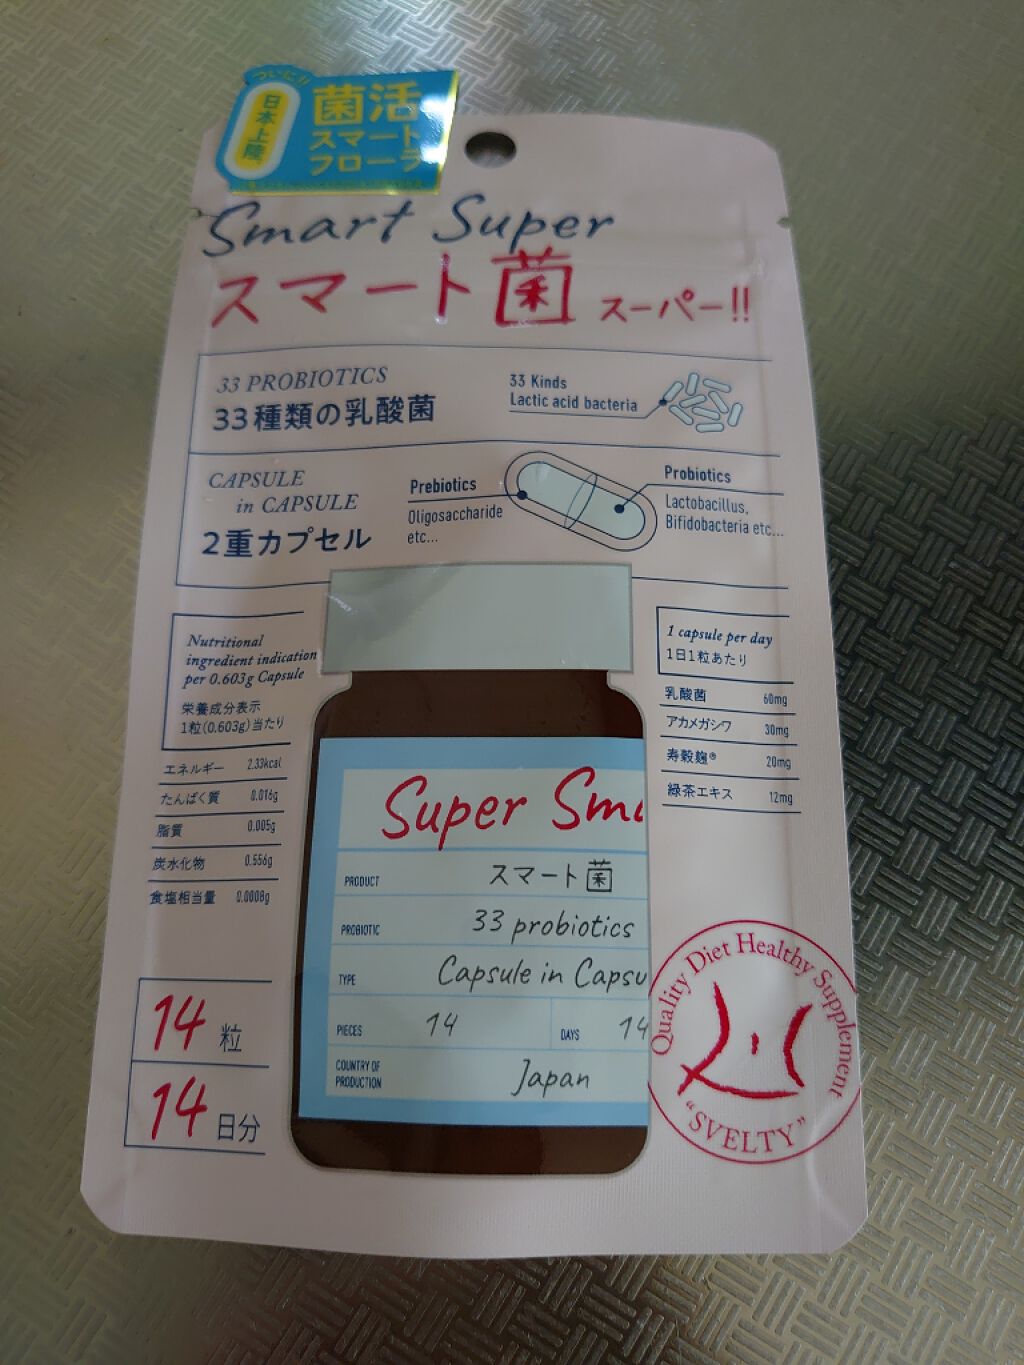 ついに!!
日本上陸
菌活
スマート
フローラ
Smart Super
スマート菌 スーパー!!
33 PROBIOTICS
33種類の乳酸菌
33 Kinds
Lactic acid bacteria
CAPSULE
in CAPSULE
2重カプセル
Prebiotics
Oligosaccharide
etc...
Probiotics
Lactobacillus,
Bifidobacteria etc...
Nutritional
ingredient indication
per 0.603g Capsule
栄養成分表示
1粒(0.603g)当たり
エネルギー 2.33kcal
たんぱく質 0.016g
脂質 0.005g
炭水化物 0.556g
食塩相当量 0.0008g
1 capsule per day
1日1粒あたり
乳酸菌 60mg
アカメガシワ 30mg
寿穀麹® 20mg
緑茶エキス 12mg
Super Sma
PRODUCT スマート菌
PROBIOTIC 33 probiotics
TYPE Capsule in Capsu
PIECES 14 DAYS 14
COUNTRY OF
PRODUCTION Japan
14粒
14日分
Quality Diet Healthy Supplement
"SVELTY"